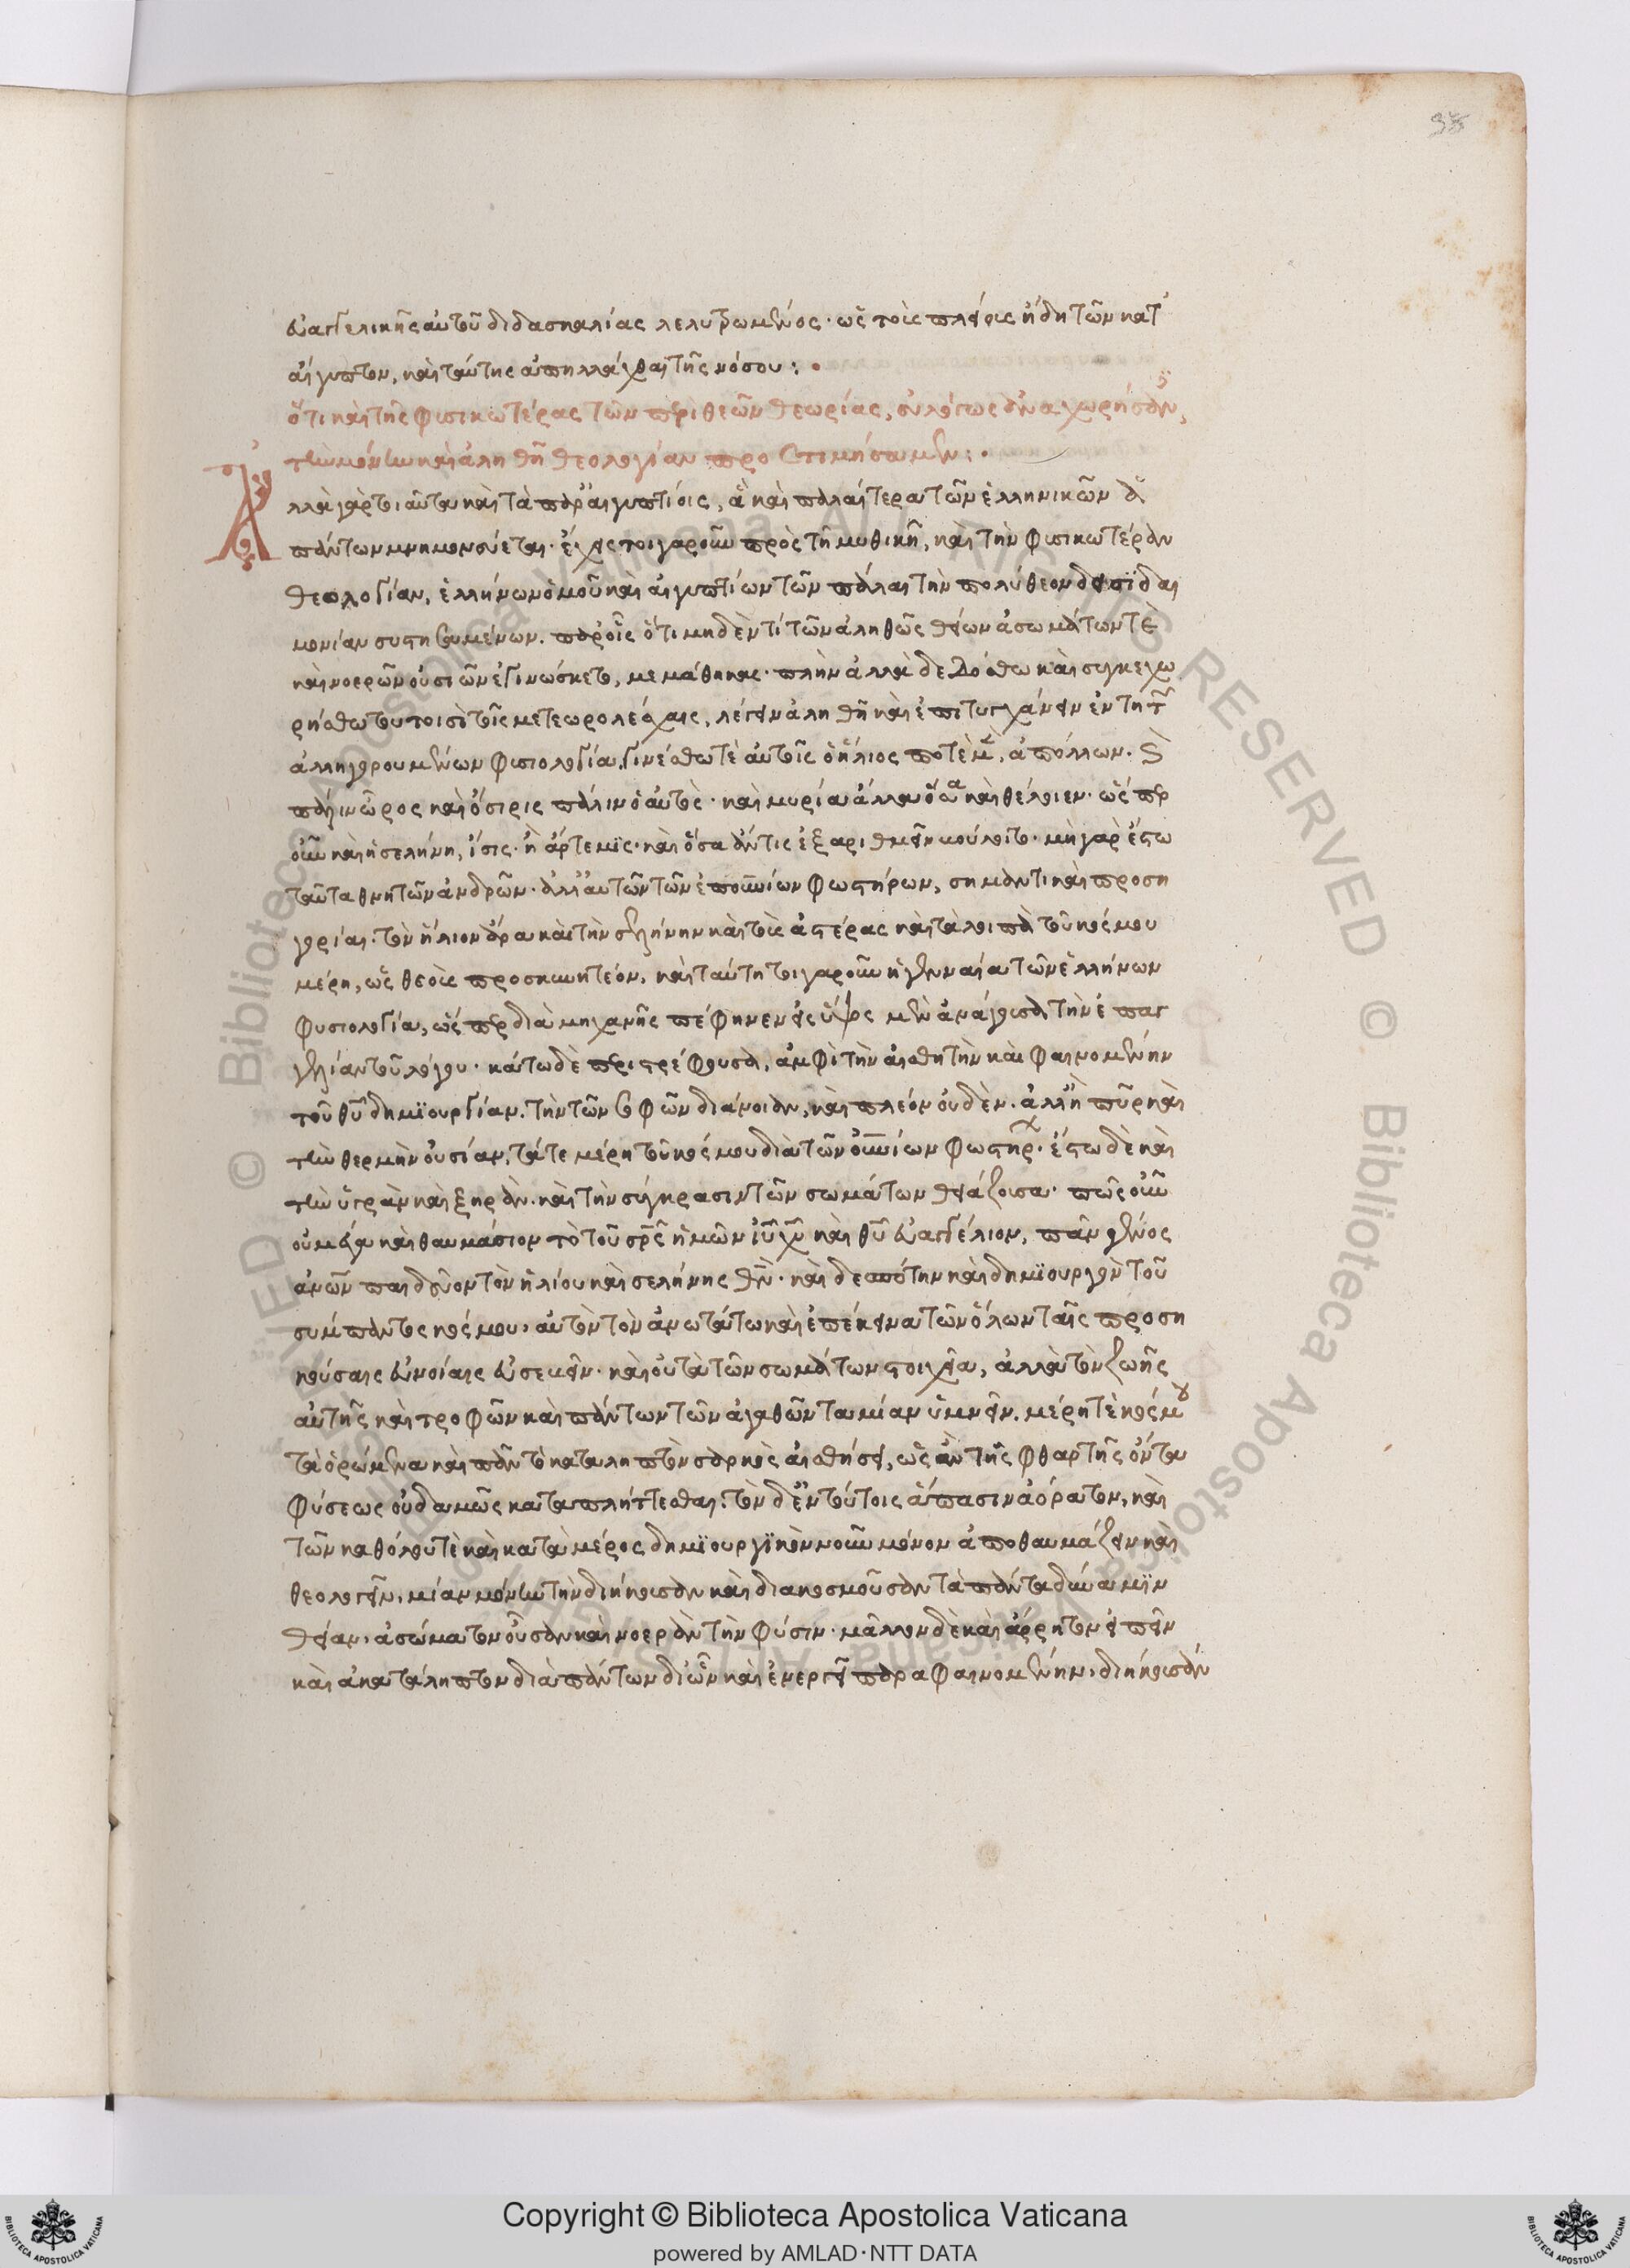 98
εὐαγγελικῆς αὐτοῦ διδασκαλίας λελυτρωμένος· ὡς τοὺς πλείους ἤδη τῶν κατ᾽
αἴγυπτον, καὶ ταύτης ἀπηλλάχθαι τῆς νόσου:
ὅτι καὶ τῆς φυσικωτέρας τῶν περὶ θεῶν θεωρίας, εὐλόγως ἀναχωρήσαντες,
τὴν μόνην καὶ ἀληθῆ θεολογίαν προετιμήσαμεν:
Ἀλλὰ γὰρ τοιαῦτα καὶ τὰ παρ᾽ αἰγυπτίοις, ἃ καὶ παλαίτερα τῶν ἑλληνικῶν διὰ
πάντων μνημονεύεται· ἔχεις τοιγαροῦν πρὸς τῇ μυθικῇ, καὶ τὴν φυσικωτέραν
θεολογίαν, ἑλλήνων ὁμοῦ καὶ αἰγυπτίων τῶν πάλαι τὴν πολύθεον δεισιδαι
μονίαν συστησαμένων. παρ᾽ οἷς ὅτι μηδέν τι τῶν ἀληθῶς θείων ἀσωμάτων τε
καὶ νοερῶν οὐσιῶν ἐγινώσκετο, μεμάθηκας· πλὴν ἀλλὰ δεδόσθω καὶ συγκεχω
ρήσθω τουτοισὶ τοῖς μετεωρολέσχαις, λέγειν ἀληθῆ καὶ ἐπιτυγχάνειν ἐν τῇ τῶν
ἀλληγορουμένων φυσιολογίᾳ. γινέσθω τὲ αὐτοῖς ὁ ἥλιος ποτὲ μὲν, ἀπόλλων. καὶ
πάλιν ὧρος καὶ ὄσιρις πάλιν ὁ αὐτὸς· καὶ μυρία ἄλλα ὅσα καὶ θέλοιεν· ὥς περ
οὖν καὶ ἡ σελήνη, ἴσις· ἢ ἄρτεμις· καὶ ὅσα ἄν τις ἐξαριθμεῖν βούλοιτο· μὴ γὰρ ἔστω
ταῦτα θνητῶν ἀνδρῶν· ἀλλ᾽ αὐτῶν τῶν ἐπουρανίων φωστήρων, σημαντικὰ προση
γορίαι· τὸν ἥλιον ἄρα καὶ τὴν σελήνην καὶ τοὺς ἀστέρας καὶ τὰ λοιπὰ τοῦ κόσμου
μέρη, ὡς θεοὺς προσκυνητέον, καὶ ταύτῃ τοιγαροῦν ἡ γενναία τῶν ἑλλήνων
φυσιολογία, ὥς περ διὰ μηχανῆς πέφηνεν εἰς ὕψος μὲν ἀνάγουσα τὴν ἐπαγ
γελίαν τοῦ λόγου· κάτω δὲ περιστρέφουσα, ἀμφὶ τὴν αἰσθητὴν καὶ φαινομένην
τοῦ θεοῦ δημιουργίαν. τὴν τῶν σοφῶν διάνοιαν, καὶ πλέον οὐδὲν. ἀλλ᾽ ἢ πῦρ καὶ
τὴν θερμὴν οὐσίαν, τά τε μέρη τοῦ κόσμου διὰ τῶν οὐρανίων φωστήρων· ἔστω δὲ καὶ
τὴν ὑγρὰν καὶ ξηρὰν. καὶ τὴν σύγκρασιν τῶν σωμάτων θειάζουσα· πῶς οὖν
οὐ μέγα καὶ θαυμάσιον τὸ τοῦ σωτῆρος ἡμῶν ἰησοῦ χριστοῦ καὶ θεοῦ εὐαγγέλιον, πᾶν γένος
ἀνθρώπων παιδεῦον τὸν ἡλίου καὶ σελήνης θεὸν· καὶ δεσπότην καὶ δημιουργὸν τοῦ
σύμπαντος κόσμου, αὐτὸν τὸν ἀνωτάτω καὶ ἐπέκεινα τῶν ὅλων ταῖς προση
κούσαις ἐννοίαις εὐσεβεῖν· καὶ οὐ τὰ τῶν σωμάτων στοιχεῖα, ἀλλὰ τὸν ζωῆς
αὐτῆς καὶ τροφῶν καὶ πάντων τῶν ἀγαθῶν ταμίαν ὑμνεῖν. μέρη τὲ κόσμου
τὰ ὁρώμενα καὶ πᾶν τὸ καταληπτὸν σαρκὸς αἰσθήσει, ὡς ἂν τῆς φθαρτῆς ὄντα
φύσεως οὐδαμῶς καταπλήττεσθαι. τὸν δ᾽ ἐν τούτοις ἅπασιν ἀόρατον, καὶ
τῶν καθόλου τὲ καὶ κατὰ μέρος δημιουργικὸν νοῦν μόνον ἀποθαυμάζειν καὶ
θεολογεῖν, μίαν μόνην τὴν διήκουσαν καὶ διακοσμοῦσαν τὰ πάντα δύναμιν
θείαν, ἀσώματον οὖσαν καὶ νοερὰν τὴν φύσιν· μᾶλλον δὲ καὶ ἄρρητον εἰπεῖν
καὶ ἀκατάληπτον διὰ πάντων δι᾽ ὧν καὶ ἐνεργεῖ παραφαινομένην, διήκουσαν
Copyright © Biblioteca Apostolica Vaticana
powered by AMLAD·NTT DATA